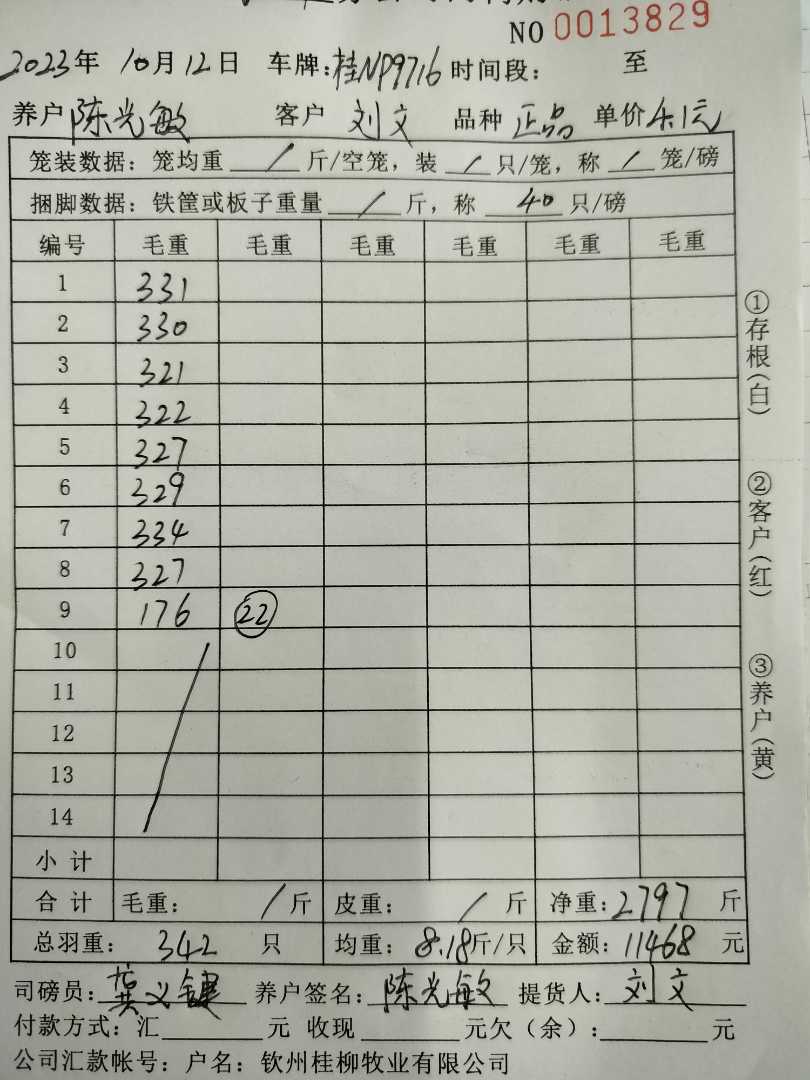 NO 0013829
2023年 10月12日 车牌:桂NP9716 时间段: 至
养户 陈光敏 客户 刘文 品种 正品 单价 4.1元
笼装数据: 笼均重 / 斤/空笼, 装 / 只/笼, 称 / 笼/磅
捆脚数据: 铁筐或板子重量 / 斤, 称 40 只/磅
编号 毛重 毛重 毛重 毛重 毛重 毛重
1 331
2 330
3 321
4 322
5 327
6 329
7 334
8 327
9 176 22
10
11
12
13
14
小 计
合 计 毛重: / 斤 皮重: / 斤 净重: 2797 斤
总羽重: 342 只 均重: 8.18斤/只 金额: 11468 元
司磅员: 龚义键 养户签名: 陈光敏 提货人: 刘文
付款方式: 汇 元 收现 元欠(余): 元
公司汇款帐号: 户名: 钦州桂柳牧业有限公司
①存根(白)
②客户(红)
③养户(黄)